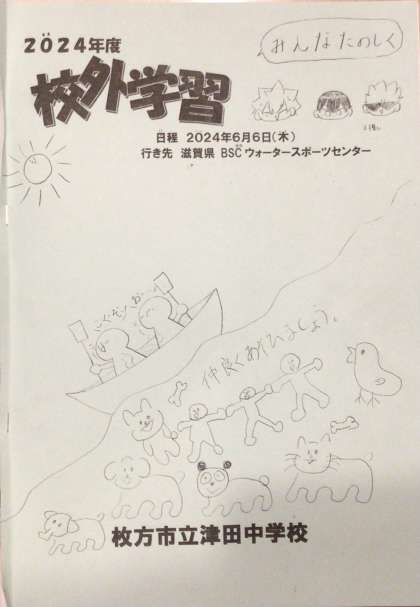 2024年度
みんなたのしく
校外学習
日程 2024年6月6日(木)
行き先 滋賀県 BSCウォータースポーツセンター
仲良くあそびましょう。
枚方市立津田中学校